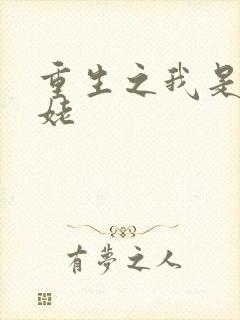 重生之我是
姥
有夢之人